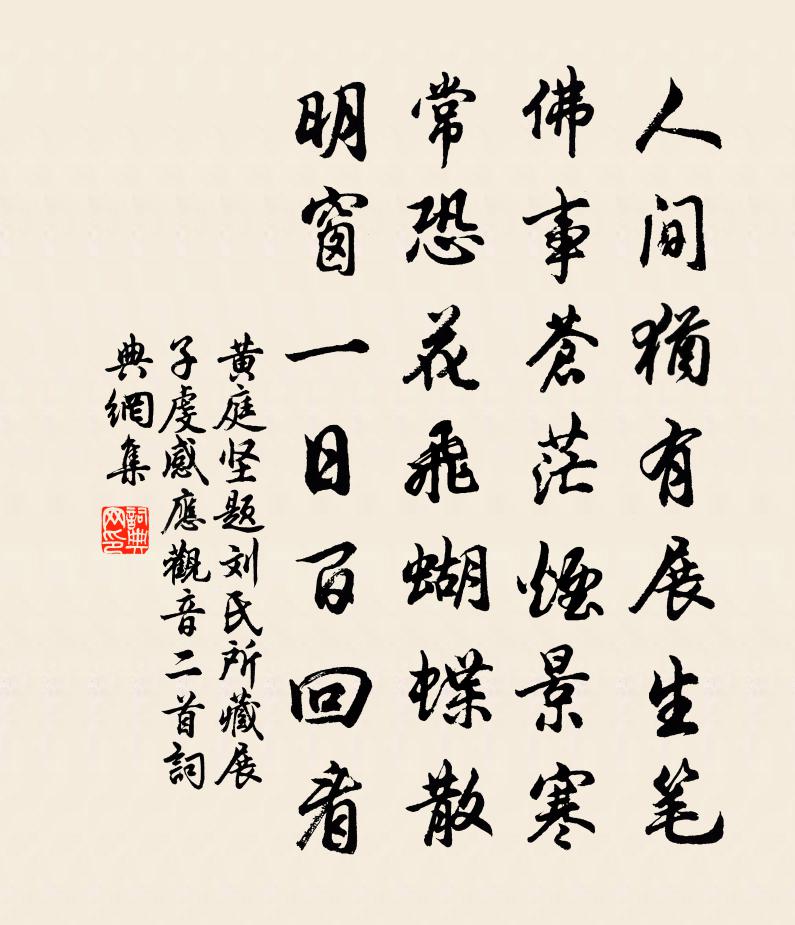 人间猶有展生笔
佛事蒼茫煙景寒
常恐花飛蝴蝶散
明窗一日百回看
黄庭坚题刘氏所藏展
子虔感應觀音二首詞
典網集
詞典网印